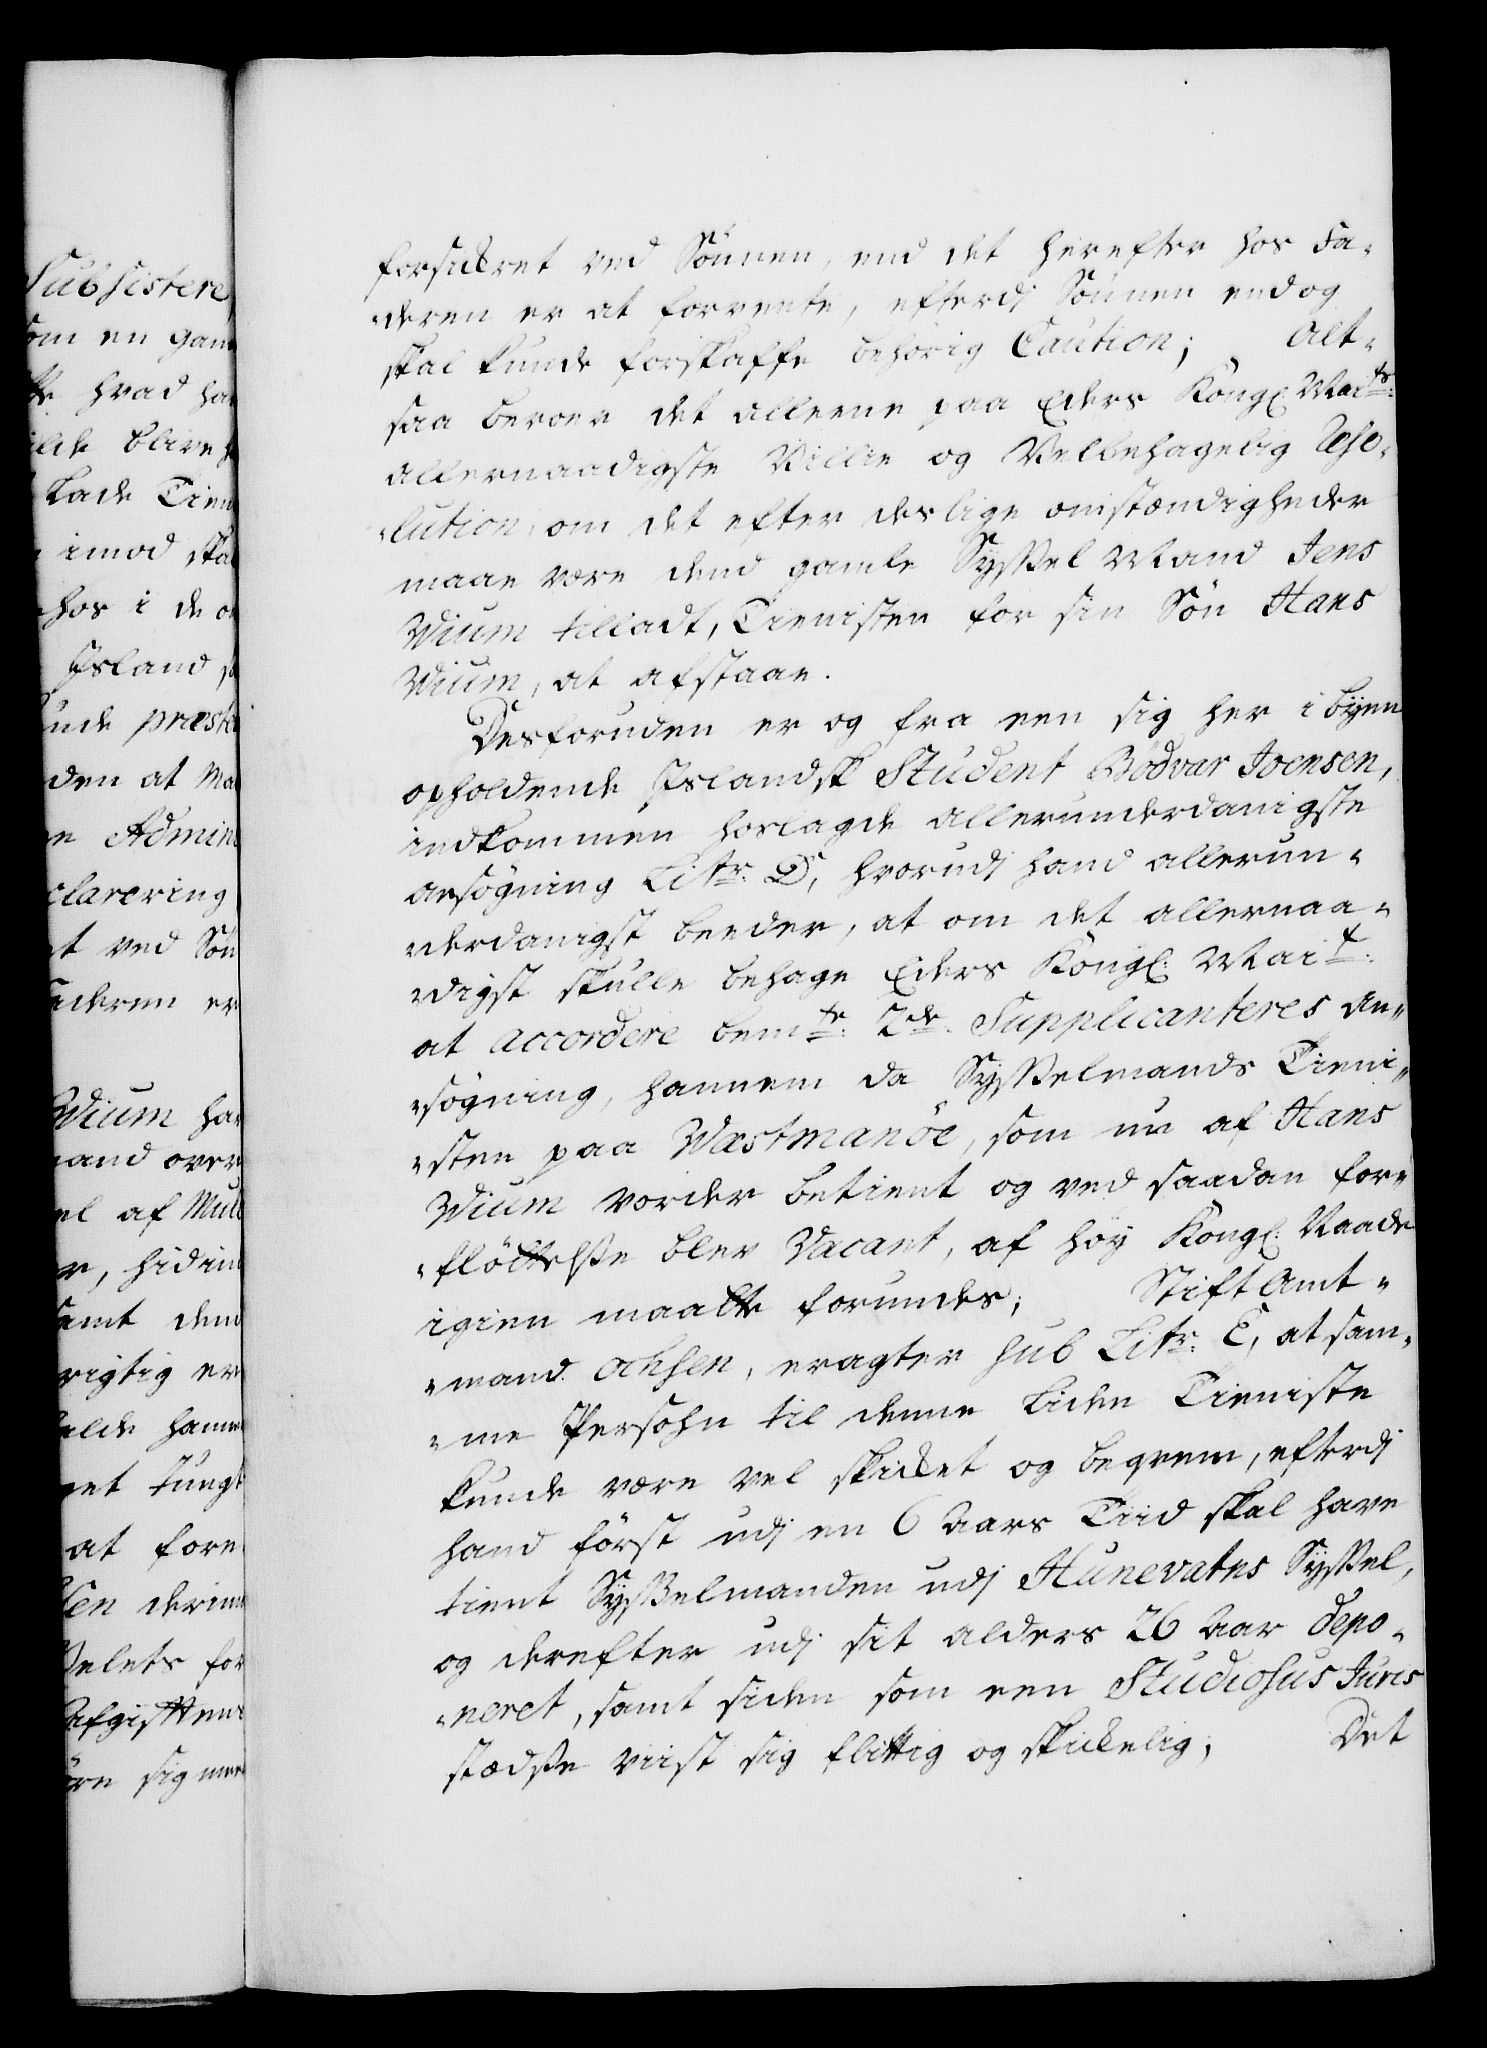 Subsistere
om en gam
te hvad ha
ilde blive
lade Tien
imod ska
hos i de
Island
unde præste
den at Ma
Admini
clarering
t ved Søn
aderen er
Wium har
mand over
el af Mul
r, hid ind
samt dend
rigtig er
hanne
et tungt
at fore
en derimo
selets for
Afgiften
øre sig mer
forsickret ved Sønnen, end det herefter hos Fa-
deren er at forvente, efterdj Sønnen endog
skal kunde forskaffe behørig Caution; Alt-
saa beroer det alleene paa Eders Kongl: Maits:
allernaadigste Villie og Velbehagelig Reso-
lution, om det efter deslige omstændigheder
maae være dend gamle Sysselmand Jens
Wium tilladt, Tienisten for sin Søn Hans
Wium, at afstaae.
Desforuden er og fra een sig her i byen
opholdende Islandsk Student Bödvar Joensen,
indkommen hoslagde allerunderdanigste
ansøgning Litr: D, hvorudj hand allerun-
derdanigst beeder, at om det allernaa-
digst skulle behage Eders Kongl: Mait:
at accordere bemte: 2de. Supplicanteres an-
søgning, hannem da Sysselmands Tieni-
sten paa Wæstmanöe, som nu af Hans
Wium vorder betient og ved saadan for-
fløttelsse blev Vacant, af høy Kongl: Naade
igien maatte forundes; Stift Amt-
mand Ochsen, eragter sub Litr: E, at sam-
me Persohn til denne liden Tieniste
kunde være vel skicket og beqvem, efterdj
hand først udj en 6 Aars Tiid skal have
tient Sysselmanden udj Hunevatns Syssel,
og derefter udj sit alders 26 Aar depo-
neret, samt siden som een Studiosus Juris
stædsse viist sig flittig og skickelig; Det